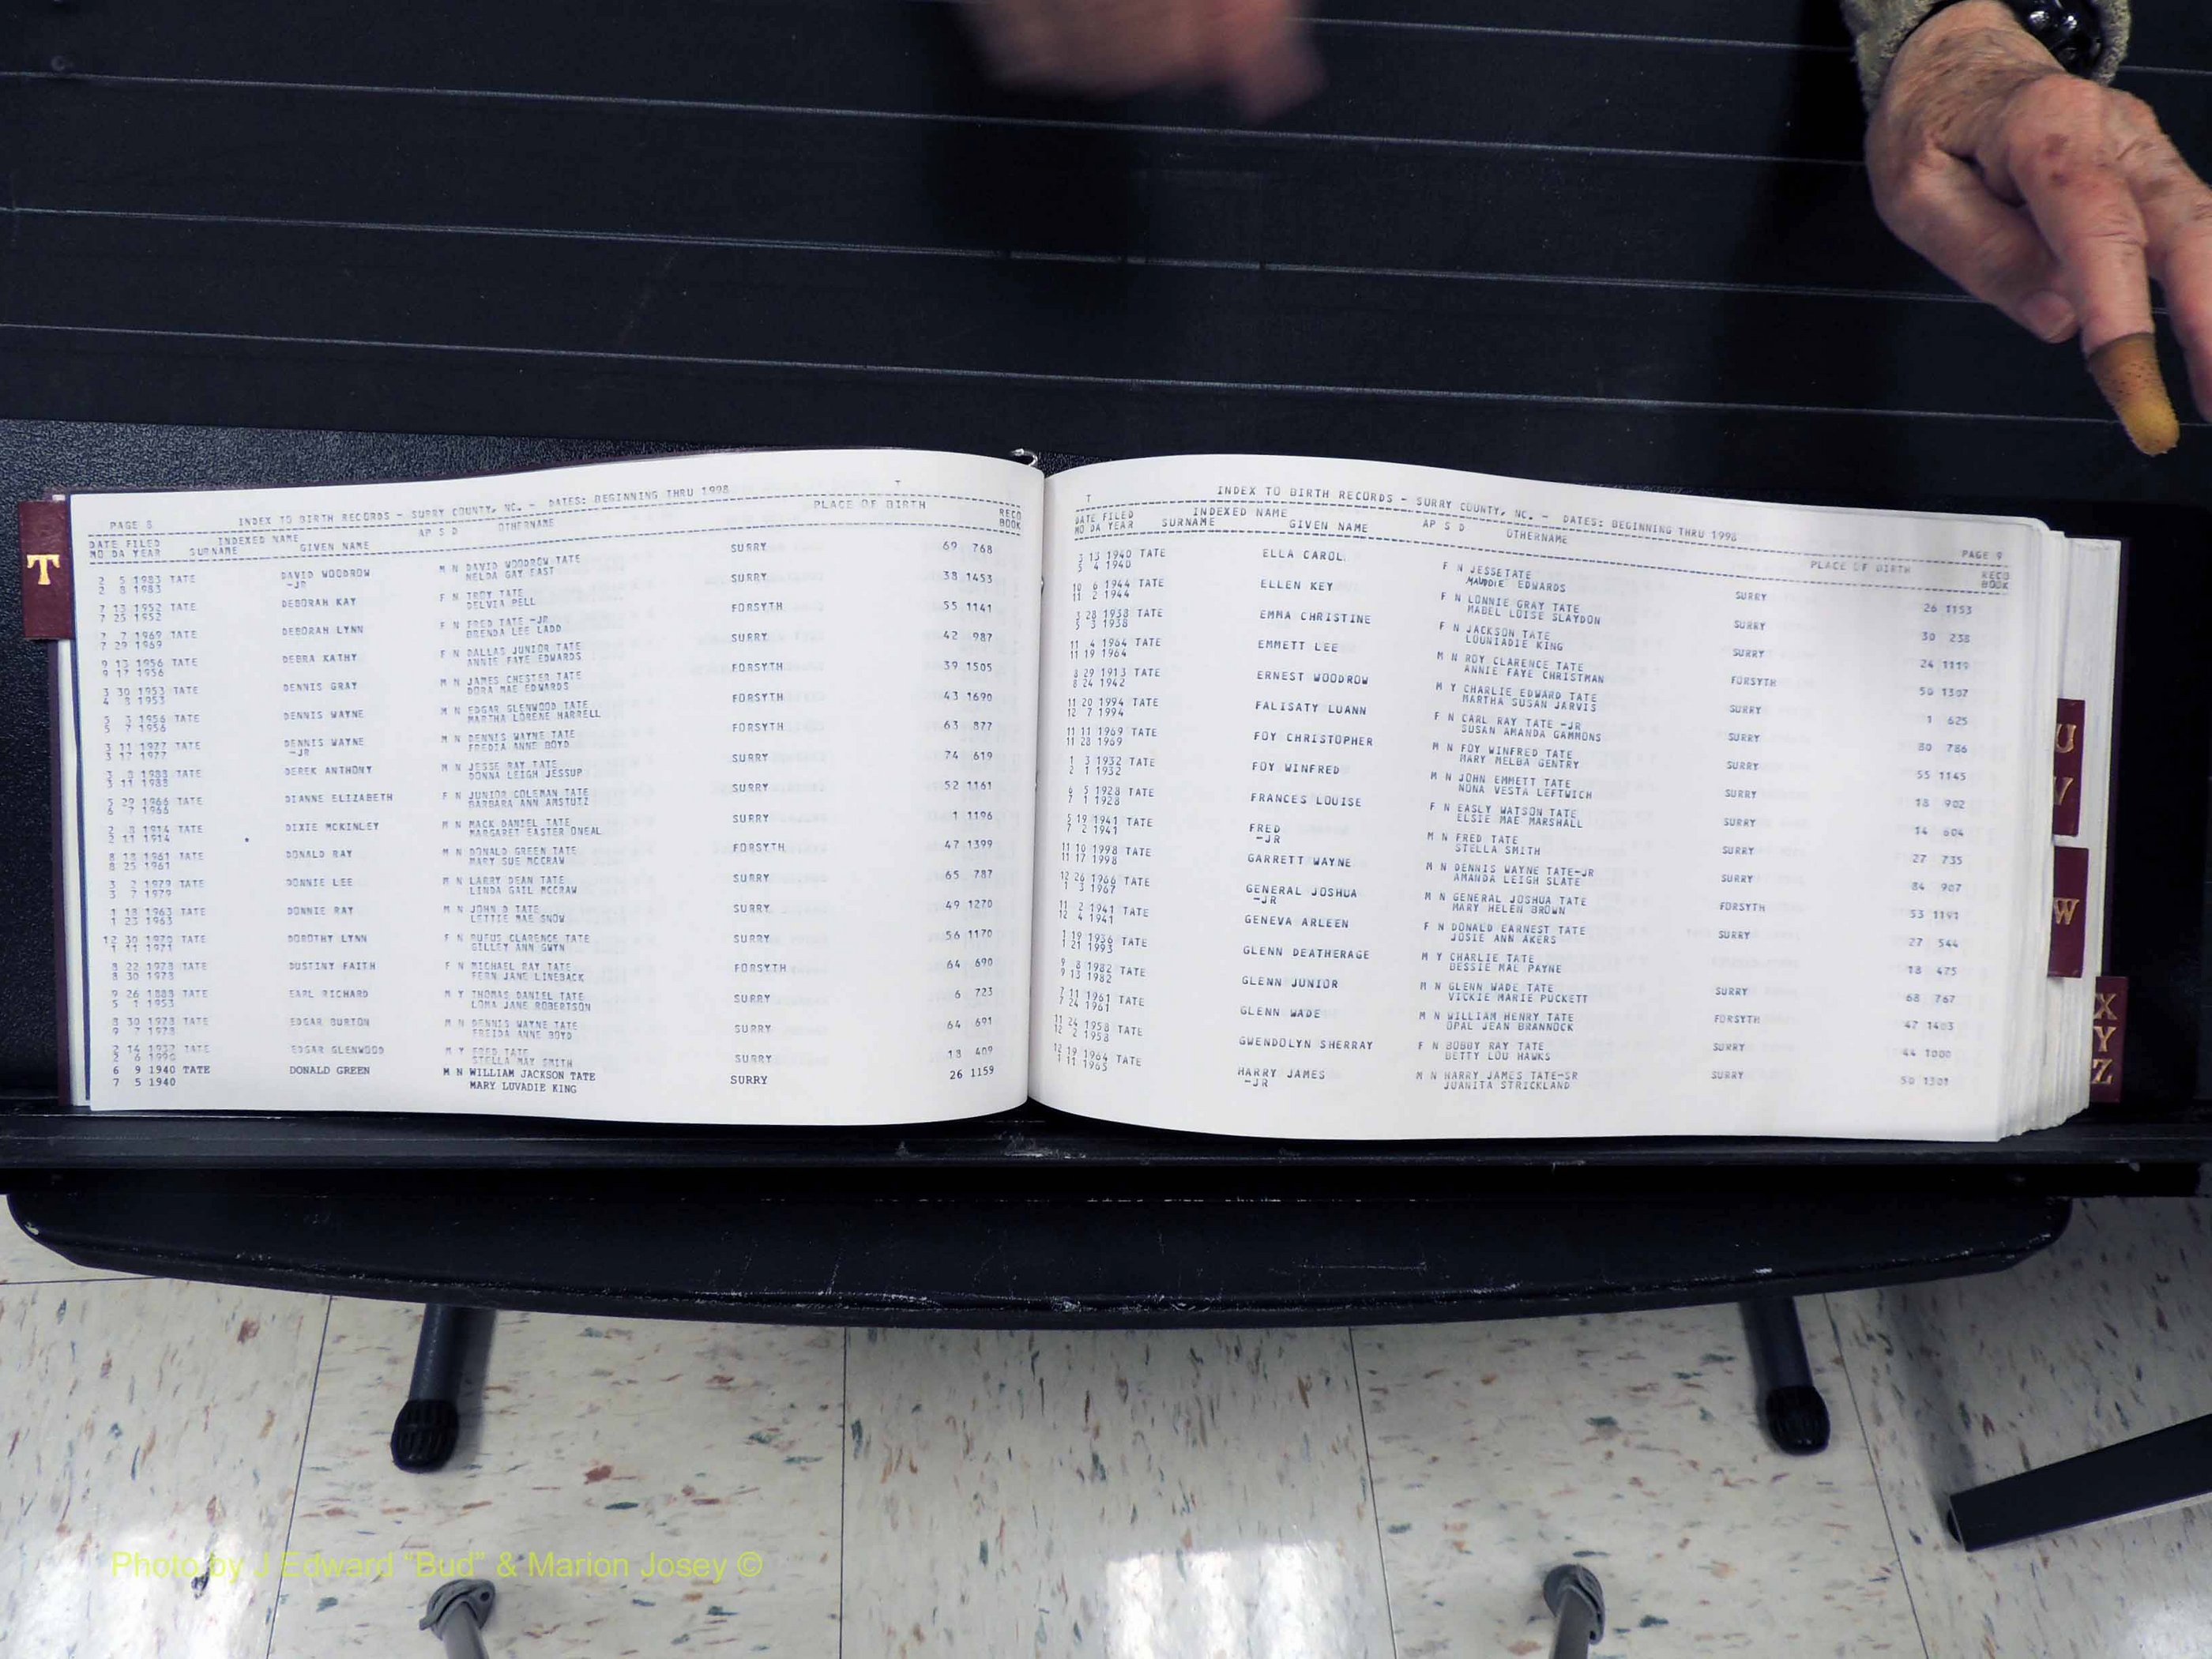 T
PAGE 8 INDEX TO BIRTH RECORDS - SURRY COUNTY, NC. - DATES: BEGINNING THRU 1998 T
DATE FILED INDEXED NAME AP S D OTHERNAME PLACE OF BIRTH RECD
MO DA YEAR SURNAME GIVEN NAME BOOK
2 5 1983 TATE DAVID WOODROW M N DAVID WOODROW TATE SURRY 69 768
2 8 1983 -JR NELDA GAY EAST
7 13 1952 TATE DEBORAH KAY F N TROY TATE SURRY 38 1453
7 25 1952 DELVIA PELL
7 7 1969 TATE DEBORAH LYNN F N FRED TATE -JR FORSYTH 55 1141
7 29 1969 BRENDA LEE LADD
9 13 1956 TATE DEBRA KATHY F N DALLAS JUNIOR TATE SURRY 42 987
9 17 1956 ANNIE FAYE EDWARDS
3 30 1953 TATE DENNIS GRAY M N JAMES CHESTER TATE FORSYTH 39 1505
4 8 1953 DORA MAE EDWARDS
5 3 1956 TATE DENNIS WAYNE M N EDGAR GLENWOOD TATE FORSYTH 43 1690
5 7 1956 MARTHA LORENE HARRELL
3 11 1977 TATE DENNIS WAYNE M N DENNIS WAYNE TATE FORSYTH 63 877
3 17 1977 -JR FREDIA ANNE BOYD
3 8 1988 TATE DEREK ANTHONY M N JESSE RAY TATE SURRY 74 619
3 11 1988 DONNA LEIGH JESSUP
5 29 1966 TATE DIANNE ELIZABETH F N JUNIOR COLEMAN TATE SURRY 52 1161
6 7 1966 BARBARA ANN AMSTUTZ
2 8 1914 TATE DIXIE MCKINLEY M N MACK DANIEL TATE SURRY 1 1196
2 11 1914 MARGARET EASTER ONEAL
8 18 1961 TATE DONALD RAY M N DONALD GREEN TATE FORSYTH 47 1399
8 25 1961 MARY SUE MCCRAW
3 2 1979 TATE DONNIE LEE M N LARRY DEAN TATE SURRY 65 787
3 7 1979 LINDA GAIL MCCRAW
1 18 1963 TATE DONNIE RAY M N JOHN D TATE SURRY 49 1270
1 23 1963 LETTIE MAE SNOW
12 30 1970 TATE DOROTHY LYNN F N RUFUS CLARENCE TATE SURRY 56 1170
1 11 1971 GILLEY ANN GWYN
8 22 1978 TATE DUSTINY FAITH F N MICHAEL RAY TATE FORSYTH 64 690
8 30 1978 FERN JANE LINEBACK
9 26 1888 TATE EARL RICHARD M Y THOMAS DANIEL TATE SURRY 6 723
5 1 1953 LOMA JANE ROBERTSON
8 30 1978 TATE EDGAR BURTON M N DENNIS WAYNE TATE SURRY 64 691
9 7 1978 FREIDA ANNE BOYD
2 14 1932 TATE EDGAR GLENWOOD M Y FRED TATE SURRY 18 409
2 6 1990 STELLA MAY SMITH
6 9 1940 TATE DONALD GREEN M N WILLIAM JACKSON TATE SURRY 26 1159
7 5 1940 MARY LUVADIE KING
T INDEX TO BIRTH RECORDS - SURRY COUNTY, NC. - DATES: BEGINNING THRU 1998 PAGE 9
DATE FILED INDEXED NAME AP S D OTHERNAME PLACE OF BIRTH RECD
MO DA YEAR SURNAME GIVEN NAME BOOK
3 13 1940 TATE ELLA CAROL F N JESSETATE SURRY 26 1153
5 4 1940 MAUDDIE EDWARDS
10 6 1944 TATE ELLEN KEY F N LONNIE GRAY TATE SURRY 30 238
11 2 1944 MABEL LOISE SLAYDON
3 28 1938 TATE EMMA CHRISTINE F N JACKSON TATE SURRY 24 1119
5 3 1938 LOUNIADIE KING
11 4 1964 TATE EMMETT LEE M N ROY CLARENCE TATE FORSYTH 50 1307
11 19 1964 ANNIE FAYE CHRISTMAN
8 29 1913 TATE ERNEST WOODROW M Y CHARLIE EDWARD TATE SURRY 1 625
8 24 1942 MARTHA SUSAN JARVIS
11 20 1994 TATE FALISATY LUANN F N CARL RAY TATE -JR SURRY 80 786
12 7 1994 SUSAN AMANDA GAMMONS
11 11 1969 TATE FOY CHRISTOPHER M N FOY WINFRED TATE SURRY 55 1145
11 28 1969 MARY MELBA GENTRY
1 3 1932 TATE FOY WINFRED M N JOHN EMMETT TATE SURRY 18 902
2 1 1932 NONA VESTA LEFTWICH
6 5 1928 TATE FRANCES LOUISE F N EASLY WATSON TATE SURRY 14 604
7 1 1928 ELSIE MAE MARSHALL
5 19 1941 TATE FRED M N FRED TATE SURRY 27 735
7 2 1941 -JR STELLA SMITH
11 10 1998 TATE GARRETT WAYNE M N DENNIS WAYNE TATE-JR SURRY 84 907
11 17 1998 AMANDA LEIGH SLATE
12 26 1966 TATE GENERAL JOSHUA M N GENERAL JOSHUA TATE FORSYTH 53 1191
1 3 1967 -JR MARY HELEN BROWN
11 2 1941 TATE GENEVA ARLEEN F N DONALD EARNEST TATE SURRY 27 544
12 4 1941 JOSIE ANN AKERS
1 19 1936 TATE GLENN DEATHERAGE M Y CHARLIE TATE 18 475
1 21 1993 BESSIE MAE PAYNE
9 8 1982 TATE GLENN JUNIOR M N GLENN WADE TATE SURRY 68 767
9 13 1982 VICKIE MARIE PUCKETT
7 11 1961 TATE GLENN WADE M N WILLIAM HENRY TATE FORSYTH 47 1403
7 24 1961 OPAL JEAN BRANNOCK
11 24 1958 TATE GWENDOLYN SHERRAY F N BOBBY RAY TATE SURRY 44 1000
12 2 1958 BETTY LOU HAWKS
12 19 1964 TATE HARRY JAMES M N HARRY JAMES TATE-SR SURRY 50 1301
1 11 1965 -JR JUANITA STRICKLAND
U
V
W
X
Y
Z
Photo by J Edward "Bud" & Marion Josey ©